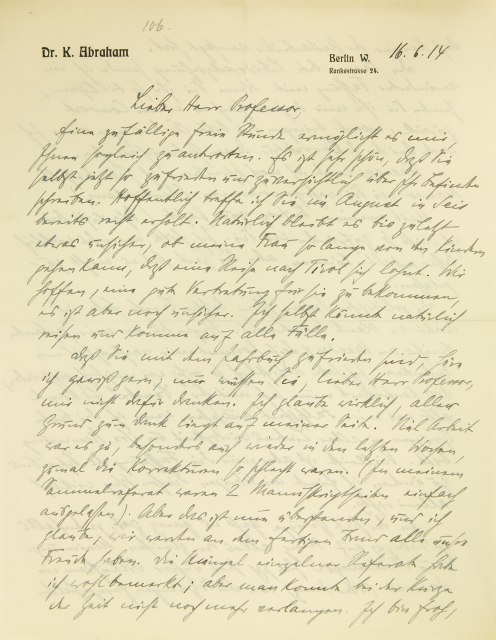 106.
Dr. K. Abraham
Berlin W. 16.6.14
Rankestrasse 24.
Lieber Herr Professor,
Eine zufällige freie Stunde ermöglicht es mir,
Ihnen sogleich zu antworten. Es ist sehr schön, daß Sie
selbst jetzt so zufrieden und zuversichtlich über Ihr Befinden
schreiben. Hoffentlich treffe ich Sie im August in Seis
bereits recht erholt. Natürlich bleibt es bis zuletzt
etwas unsicher, ob meine Frau so lange von den Kindern
gehen kann, daß eine Reise nach Tirol sich lohnt. Wir
hoffen, eine gute Vertretung für sie zu bekommen,
es ist aber noch unsicher. Ich selbst könnte natürlich
reisen und komme auf alle Fälle.
Daß Sie mit dem Jahrbuch zufrieden sind, höre
ich gewiß gern; nur müssen Sie, lieber Herr Professor,
mir nicht dafür danken. Ich glaube wirklich, aller
Grund zum Dank liegt auf meiner Seite. Viel Arbeit
war es ja, besonders auch wieder in den letzten Wochen,
zumal die Korrekturen so schlecht waren. (In meinem
Sammelreferat waren 2 Manuskriptseiten einfach
ausgelassen). Aber das ist nun überstanden, und ich
glaube, wir werden an dem fertigen Band alle unsre
Freude haben. Die Mängel einzelner Referate habe
ich wohl bemerkt; aber man konnte bei der Kürze
der Zeit nicht noch mehr verlangen. Ich bin froh,